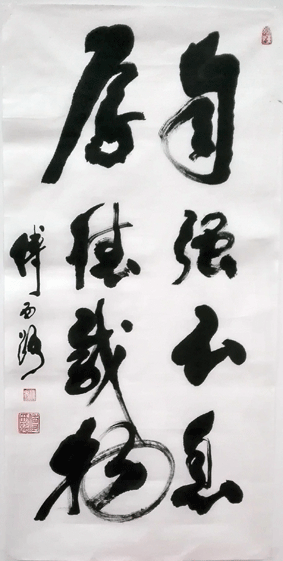 自强不息
厚德载物
傅西路